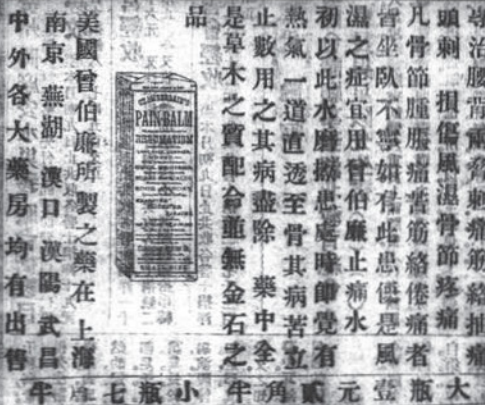 專治腰背兩脅刺痛筋絡抽痛
頭刺 損傷風濕骨節疼痛
凡骨節腫脹痛苦筋絡倦痛者
皆坐臥不寧如有此患便是風
濕之症宜用曾伯廉止痛水
初以此水磨擦患處時即覺有
熱氣一道直透至骨其病苦立
止數用之其病盡除 藥中全
是草木之質配合並無金石之
品
PAIN-BALM
RHEUMATISM
美國曾伯廉所製之藥在上海
南京 蕪湖 漢口 漢陽 武昌
中外各大藥房均有出售
大瓶壹元貳角半小瓶七半